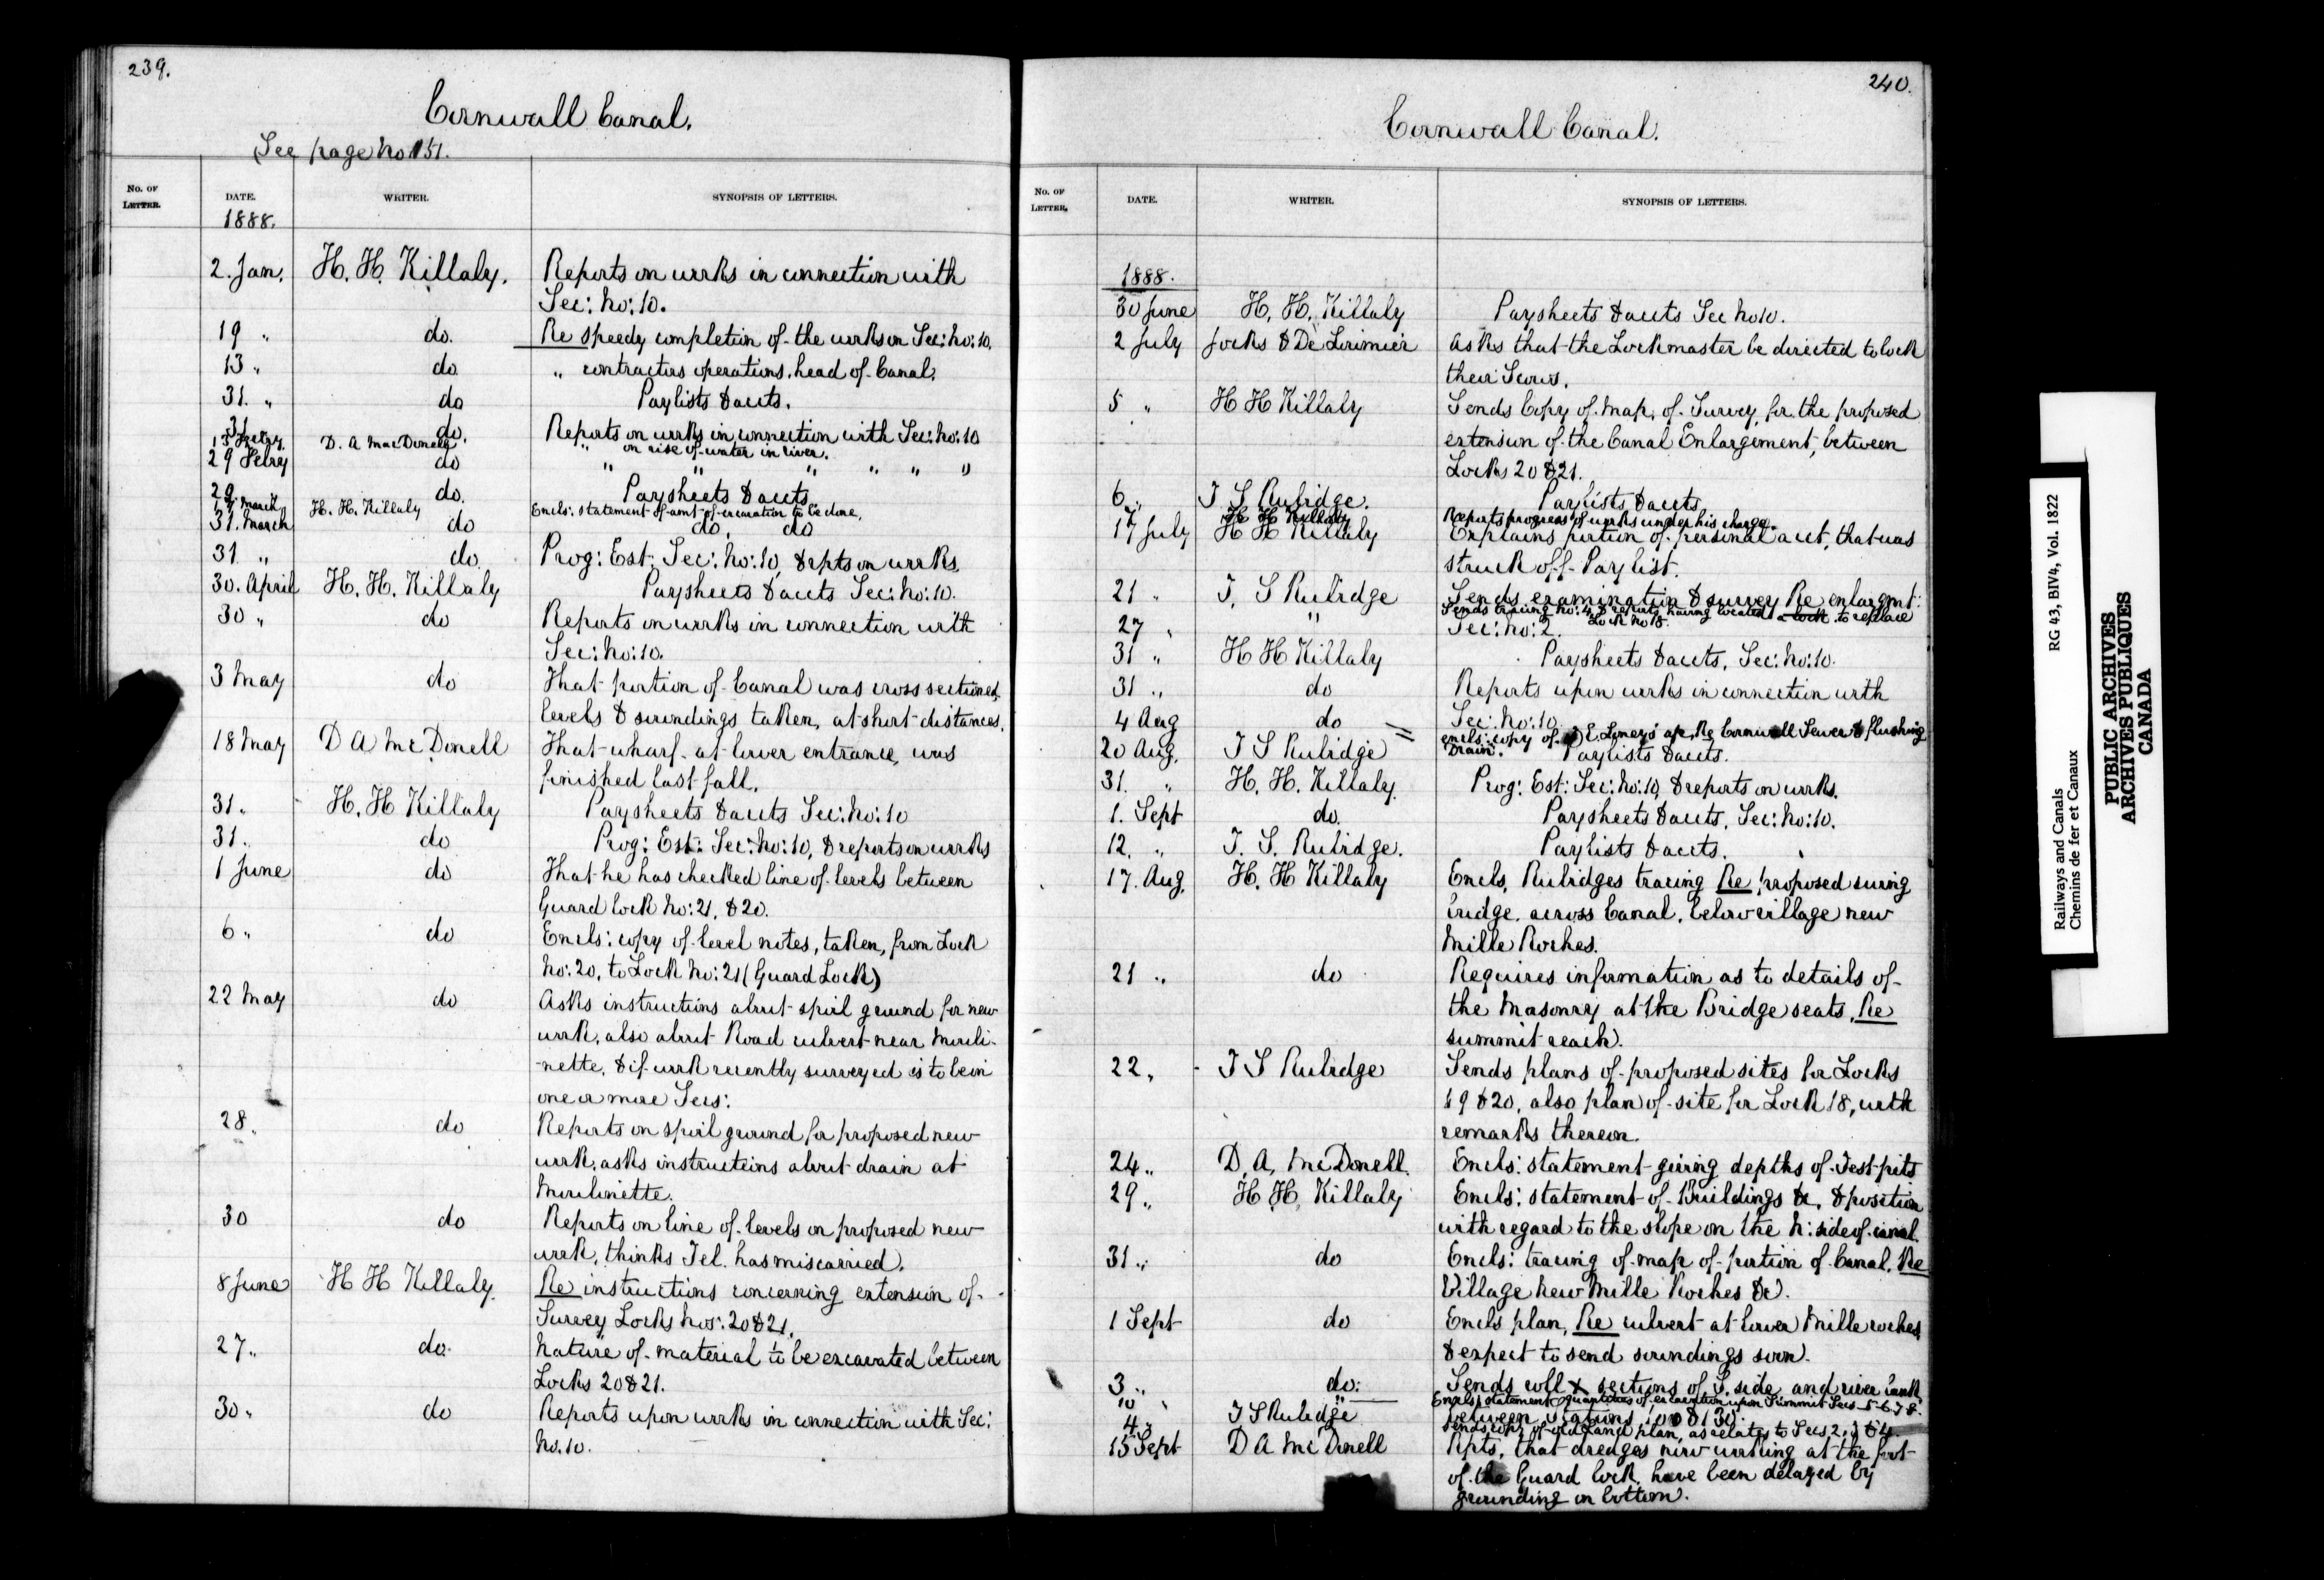 239.
Cornwall Canal.
See page No 151.
No. of Letter. DATE. WRITER. SYNOPSIS OF LETTERS.
1888.
2. Jan. H. H. Killaly. Reports on works in connection with
Sec: No: 10.
19 " do. Re speedy completion of the works on Sec: No: 10.
13 " do " contractors operations, head of Canal.
31. " do Paylists & accts.
31 " do. Reports on works in connection with Sec: No: 10
13 Febry. D. A MacDonell " on rise of water in river.
29 Febry do " " " " " "
29 do. Paysheets & accts
17 March H. H. Killaly Encls: statement of amt of excavation to be done.
31. March do do. do
31 " do. Prog: Est: Sec: No: 10, & rpts on works.
30. April H. H. Killaly Paysheets & accts Sec: No: 10.
30 " do Reports on works in connection with
Sec: No: 10.
3 May do That portion of Canal was cross sectioned,
levels & soundings taken, at short distances.
18 May D A McDonell That wharf at lower entrance, was
finished last fall.
31. H. H Killaly Paysheets & accts Sec: No: 10
31. do Prog: Est: Sec: No: 10, & reports on works
1 June do That he has checked line of levels between
Guard lock No: 21, & 20.
6 " do Encls: copy of level notes, taken, from Lock
No: 20, to Lock No: 21 (Guard Lock)
22 May do Asks instructions about spoil ground for new
work, also about Road culvert near Mouli-
-nette, & if work recently surveyed is to be in
one or more Secs:
28 " do Reports on spoil ground for proposed new
work, asks instructions about drain at
Moulinette.
30 do Reports on line of levels on proposed new
work, thinks Tel. has miscarried.
8 June H H Killaly. Re instructions concerning extension of
Survey Locks Nos: 20 & 21.
27 " do. Nature of material to be excavated between
Locks 20 & 21.
30 " do Reports upon works in connection with Sec:
No. 10.
240.
Cornwall Canal.
No. of Letter. DATE. WRITER. SYNOPSIS OF LETTERS.
1888.
30 June H. H. Killaly Paysheets & accts Sec No 10.
2 July Jocks & De Lorimier Asks that the Lockmaster be directed to lock
their Scows.
5 " H H Killaly Sends Copy of map, of Survey, for the proposed
extension of the Canal Enlargement, between
Locks 20 & 21.
6 " T S Rubidge. Paylists & accts
H H Killaly Reports progress of works under his charge.
17 July H H Killaly Explains portion of personal acct, that was
struck off Paylist.
21 " T. S Rubidge Sends examination & survey Re enlargmt:
Sec: No: 2.
27 " " Sends tracing No: 4, & reports having located a lock to replace
Lock No 18.
31 " H H Killaly Paysheets & accts, Sec: No: 10.
31 " do Reports upon works in connection with
Sec: No: 10
4 Aug do encls: copy of E. Limey's ap, Re Cornwall Sewer & flushing
Drain.
20 Aug. T S Rubidge Paylists & accts.
31. " H. H. Killaly. Prog: Est: Sec: No: 10, & reports on works.
1. Sept do. Paysheets & accts, Sec: No: 10.
12. " T. S. Rubidge. Paylists & accts.
17. Aug. H. H Killaly Encls, Rubidges tracing Re proposed swing
bridge, across Canal, below village new
Mille Roches.
21 " do Requires information as to details of
the Masonry at the Bridge seats, Re
summit reach.
22 " T S Rubidge Sends plans of proposed sites for Locks
19 & 20, also plan of site for Lock 18, with
remarks thereon.
24 " D. A. McDonell. Encls: statement giving depths of Test pits
29 " H. H. Killaly Encls: statement of Buildings &c, & position
with regard to the slope on the N: side of canal.
31 " do Encls: tracing of map of portion of Canal, Re
Village New Mille Roches &c.
1 Sept do Encls plan, Re culvert at lower Mille roches
& expect to send soundings soon.
3 " do: Sends roll X sections of S. side and river bank
between stations 100 & 130.
10 " " Encls, statement quantities of excavation upon Summit Secs 5-6-7-8.
4 " T S Rubidge Sends copy of old Land plan, as relates to Secs 2, 3 & 4
15 Sept D A McDonell Rpts, that dredges now working at the foot
of the Guard lock, have been delayed by
grounding on bottom.
Railways and Canals RG 43, BIV4, Vol. 1822
Chemins de fer et Canaux
PUBLIC ARCHIVES
ARCHIVES PUBLIQUES
CANADA